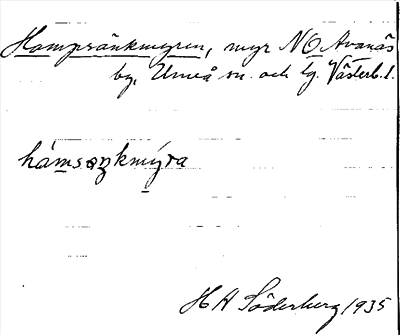 Hampsänkmyren, myr NO Avanäs
by, Umeå sn. och tg. Västerb. l.
hámsǝŋkmýra
H A Söderberg 1935